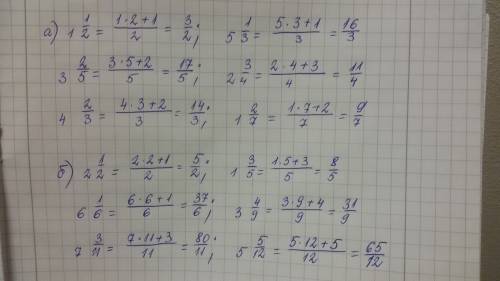 а) 1 1/2 = (1·2+1)/2 = 3/2; 5 1/3 = (5·3+1)/3 = 16/3
3 2/5 = (3·5+2)/5 = 17/5; 2 3/4 = (2·4+3)/4 = 11/4
4 2/3 = (4·3+2)/3 = 14/3; 1 2/7 = (1·7+2)/7 = 9/7
б) 2 1/2 = (2·2+1)/2 = 5/2; 1 3/5 = (1·5+3)/5 = 8/5
6 1/6 = (6·6+1)/6 = 37/6; 3 4/9 = (3·9+4)/9 = 31/9
7 3/11 = (7·11+3)/11 = 80/11; 5 5/12 = (5·12+5)/12 = 65/12